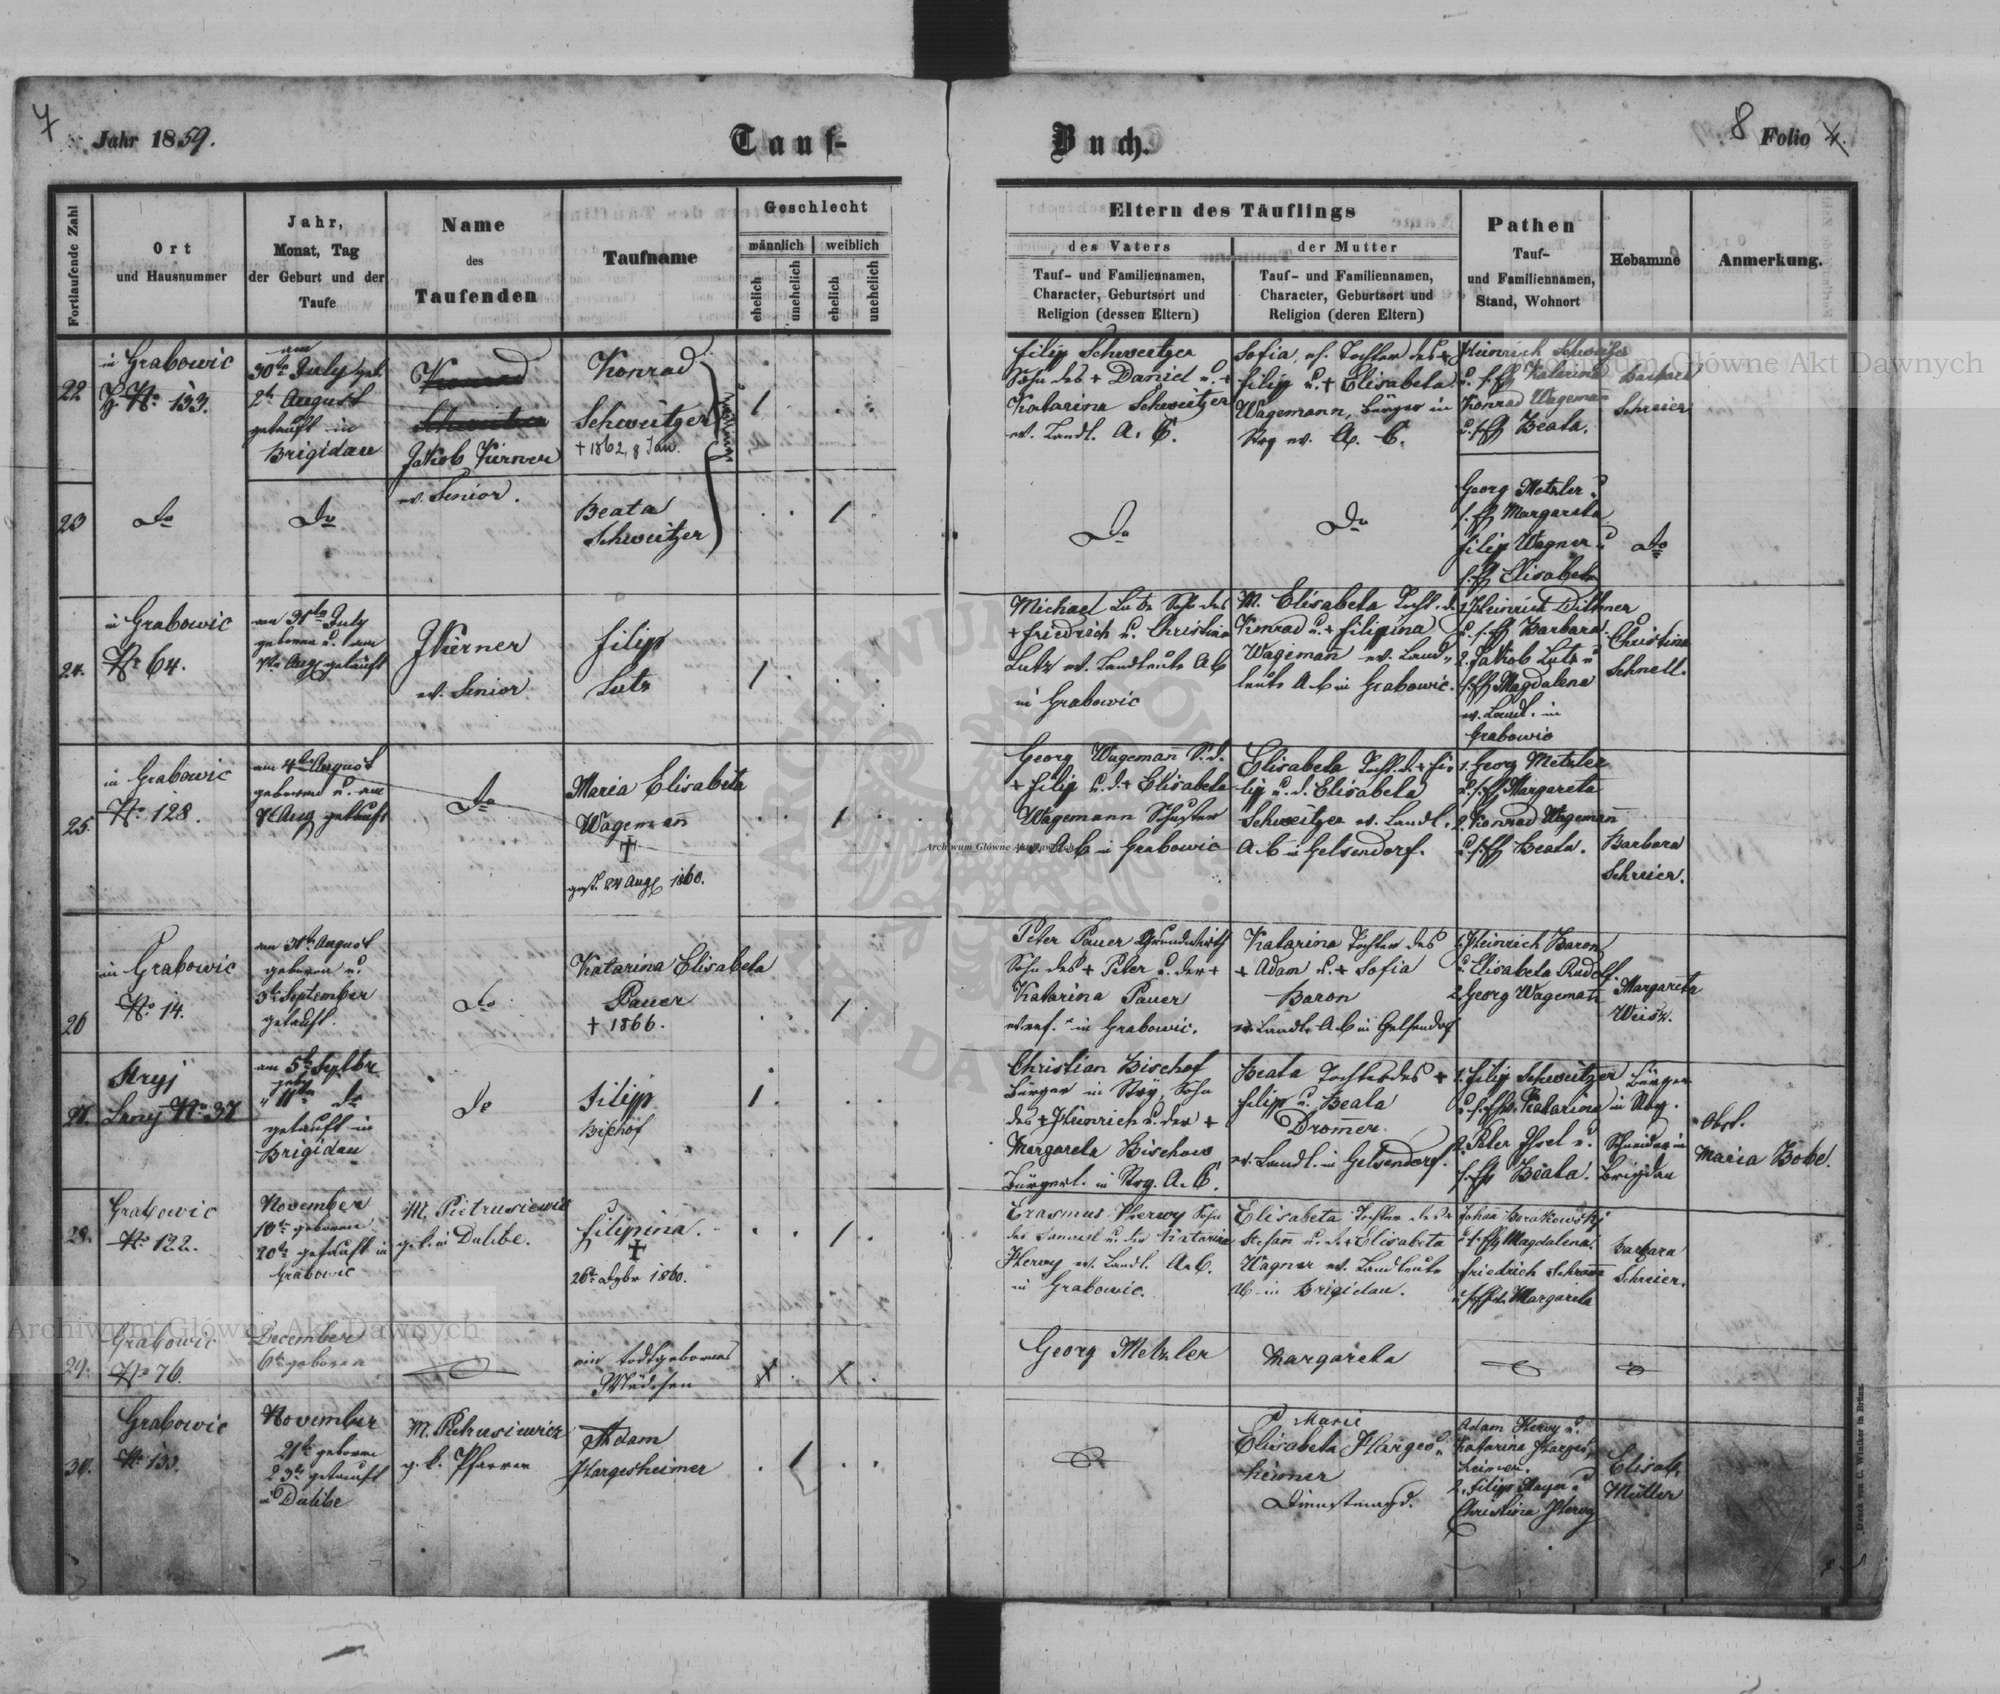 7
Jahr 1859.
Tauf-
Buch.
8 Folio 4.
Fortlaufende Zahl
Ort
und Hausnummer
Jahr,
Monat, Tag
der Geburt und der
Taufe
Name
des
Taufenden
Taufname
Geschlecht
männlich
weiblich
ehelich
unehelich
ehelich
unehelich
Eltern des Täuflings
des Vaters
Tauf- und Familiennamen,
Character, Geburtsort und
Religion (dessen Eltern)
der Mutter
Tauf- und Familiennamen,
Character, Geburtsort und
Religion (deren Eltern)
Pathen
Tauf-
und Familiennamen,
Stand, Wohnort
Hebamme
Anmerkung.
22
in Grabowic
H. No 133.
am
30te July geb.
2te August
getauft in
Brigidau
Konrad
Schweitzer
Jakob Kierner
ev. Senior.
Konrad
Schweitzer
+ 1862, 8 Jan.
1
Filip Schweitzer
Sohn des + Daniel u. +
Katarina Schweitzer
ev. Landl. A. C.
Sofia, Tochter des +
Filip u. + Elisabeta
Wagemann, Bürger in
Stry ev. A. C.
Heinrich Schweitzer
Katarina
Konrad Wageman
Beata.
Barbara
Schreier
23
Do
Do
Beata
Schweitzer
1
Do
Do
Georg Metzler u.
Margareta
Filip Wagner u.
Elisabeta
Do
24.
in Grabowic
No 64.
am 31te July
geboren u. am
Aug getauft
J Kierner
ev. Senior
Filipp
Lutz
1
Michael Lutz Sohn des
+ Friedrich u. Christina
Lutz ev. Landleute A C
in Grabowic
M. Elisabeta Tocht. d.
Konrad u. + Filipina
Wagemann ev. Land-
leute A C in Grabowic.
1. Heinrich Dithmer
Barbara.
2. Jakob Lutz u
Magdalena
ev. Landl. in
Grabowic
Christina
Schnell.
25.
in Grabowic
No 128.
am 4te August
geboren u. am
Aug getauft
Do
Maria Elisabeta
Wagemann
+
gest. 24 Aug 1860.
1
Georg Wagemann S. d.
+ Filip u. d. + Elisabeta
Wagemann Schuster
A C in Grabowic
Elisabeta Tocht. d. + Fi-
lip u. d. Elisabeta
Schweitzer ev. Landl.
A. C in Gelsendorf.
1. Georg Metzler
Margareta
2. Konrad Wagemann
Beata.
Barbara
Schreier.
26
in Grabowic
No 14.
am 31te August
geboren u.
3te September
getauft.
Do
Katarina Elisabeta
Pauer
+ 1866.
1
Peter Pauer Grundwirth
Sohn des + Peter u. der +
Katarina Pauer
in Grabowic.
Katarina Tochter des
+ Adam u. + Sofia
Baron
ev. Landl. A C in Gelsendorf
1. Heinrich Baron
u. Elisabeta Rudolf.
2. Georg Wagemann
Margareta
Weisz.
27.
Stryj
Lany No 37
am 5te Septbr
geb.
" 11te do
getauft in
Brigidau
Do
Filipp
Bischof
1
Christian Bischof
Bürger in Stry, Sohn
des + Heinrich u. der +
Margareta Bischof
Bürgerl. in Stry. A. C.
Beata Tochter des +
Filipp u. Beata
Dromer.
ev. Landl. in Gelsendorf.
1. Filip Schweitzer Bürger
Katarina in Stry.
2. Peter u. Schneider in
Beata. Brigidau
Maria Bobel.
28.
Grabowic
No 122.
November
10te geboren
20te getauft in
Grabowic
M. Pietrusiewic
g. k. in Dulibe.
Filipina.
+
26te Dzbr 1860.
1
Erasmus Herwy Sohn
des Samuel u. der Katarina
Herwy ev. Landl. A. C.
in Grabowic.
Elisabeta Tochter des +
Stefan u. der Elisabeta
Wagner ev. Landleute
AC in Brigidau.
Johan Borakowskj
Magdalena.
Friedrich
Margareta
Barbara
Schreier.
29.
Grabowic
No 76.
December
6te geboren
ein todtgebornes
Mädchen
X
X
Georg Metzler
Margareta
30.
Grabowic
No 133.
November
21te geboren
23te getauft
in Dulibe
M. Pietrusiewicz
g. k. Pfarrer
Adam
Hargesheimer
1
Marie
Elisabeta Harges-
heimer
Dienstmagd.
Adam Herwy u.
Katarina Harges-
heimer.
2. Filipp Mayer u
Christina Herwy
Elisab.
Müller
Druck von C. Winiker in Brünn.
Archiwum Główne Akt Dawnych
Archiwum Główne Akt Dawnych
Archiwum Główne Akt Dawnych
ARCHIWUM GŁÓWNE AKT DAWNYCH